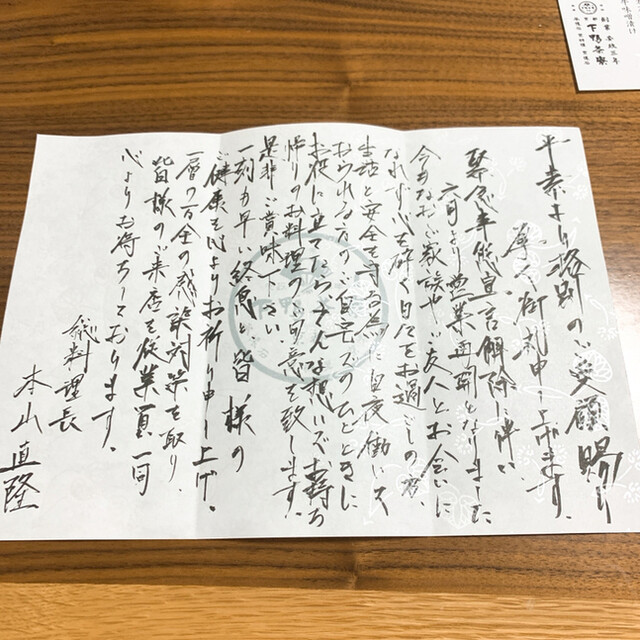 平素より格別のご愛顧賜り
厚く御礼申し上げます。
緊急事態宣言解除に伴い、
六月より営業再開となりました
今もなおご家族やご友人とお会いに
なれず心を砕く日々をお過ごしの方、
生活と安全を守る為に昼夜働いて
おられる方のご自宅でのひとときに
お役に立てたらそんな想いでお持ち
帰りのお料理のご用意を致します。
是非ご賞味下さい。
一刻も早い終息と皆様の
ご健康を心よりお祈り申し上げ、
一層の万全の感染対策を取り、
皆様のご来店を従業員一同
心よりお待ちしております。
総料理長
本山直隆
下鴨茶寮
創業 安政三年
下鴨茶寮
味噌漬け